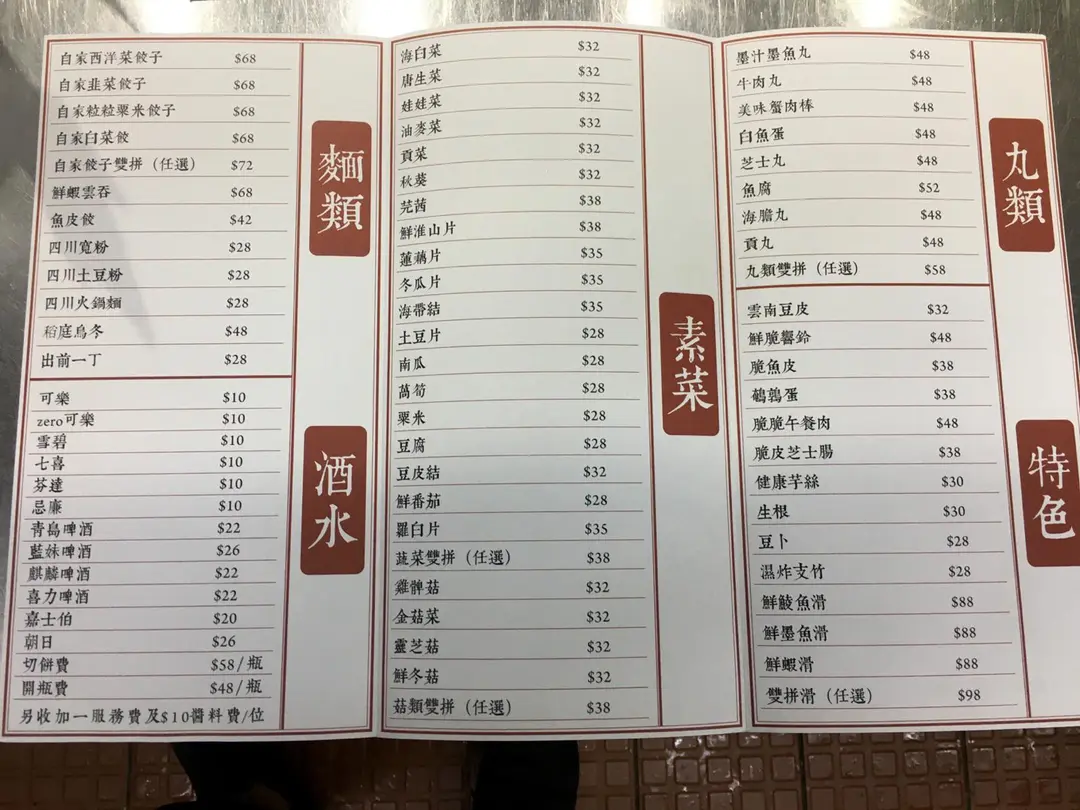 自家西洋菜餃子 $68
自家韭菜餃子 $68
自家粒粒粟米餃子 $68
自家白菜餃 $68
自家餃子雙拼（任選） $72
鮮蝦雲吞 $68
魚皮餃 $42
四川寬粉 $28
四川土豆粉 $28
四川火鍋麵 $28
稻庭烏冬 $48
出前一丁 $28
麵類
可樂 $10
zero可樂 $10
雪碧 $10
七喜 $10
芬達 $10
忌廉 $10
青島啤酒 $22
藍妹啤酒 $26
麒麟啤酒 $22
喜力啤酒 $22
嘉士伯 $20
朝日 $26
切餅費 $58/瓶
開瓶費 $48/瓶
另收加一服務費及$10醬料費/位
酒水
海白菜 $32
唐生菜 $32
娃娃菜 $32
油麥菜 $32
貢菜 $32
秋葵 $32
芫茜 $38
鮮淮山片 $38
蓮藕片 $35
冬瓜片 $35
海帶結 $35
土豆片 $28
南瓜 $28
萵筍 $28
粟米 $28
豆腐 $28
豆皮結 $32
鮮番茄 $28
羅白片 $35
蔬菜雙拼（任選） $38
雞髀菇 $32
金菇菜 $32
靈芝菇 $32
鮮冬菇 $32
菇類雙拼（任選） $38
素菜
墨汁墨魚丸 $48
牛肉丸 $48
美味蟹肉棒 $48
白魚蛋 $48
芝士丸 $48
魚腐 $52
海膽丸 $48
貢丸 $48
丸類雙拼（任選） $58
丸類
雲南豆皮 $32
鮮脆響鈴 $48
脆魚皮 $38
鵪鶉蛋 $38
脆脆午餐肉 $48
脆皮芝士腸 $38
健康芋絲 $30
生根 $30
豆卜 $28
濕炸支竹 $28
鮮鯪魚滑 $88
鮮墨魚滑 $88
鮮蝦滑 $88
雙拼滑（任選） $98
特色